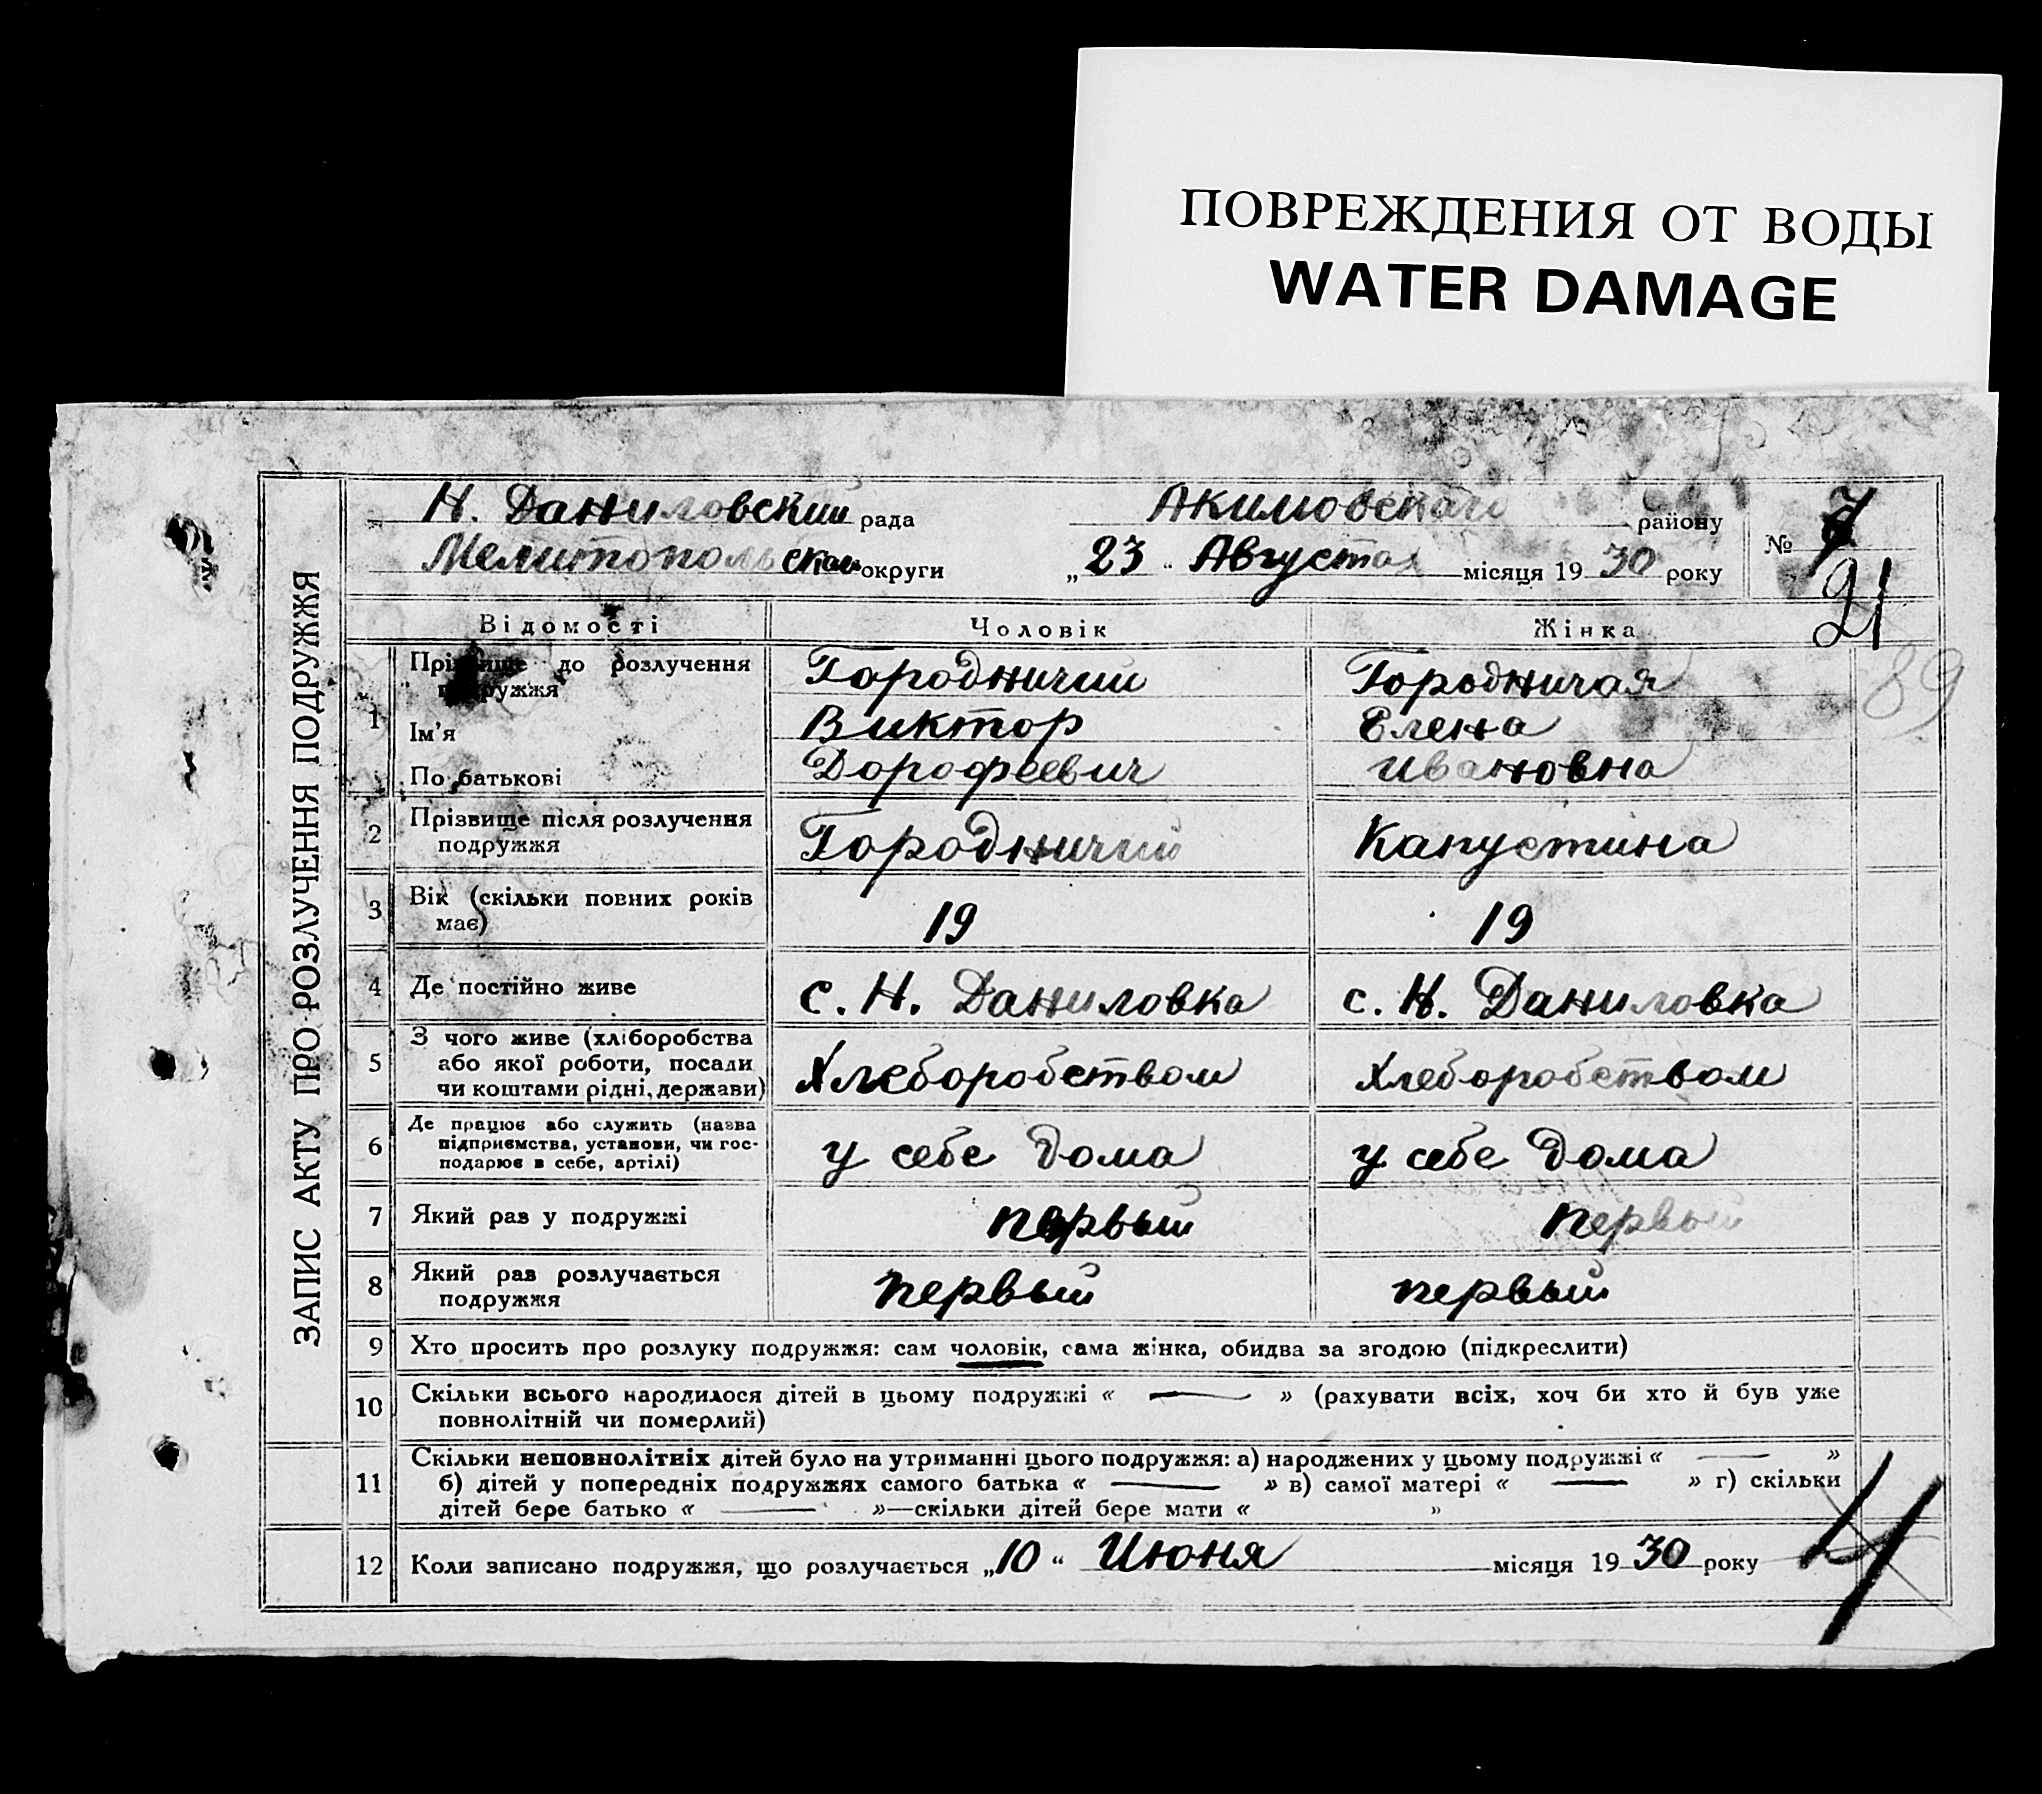 ПОВРЕЖДЕНИЯ ОТ ВОДЫ
WATER DAMAGE
ЗАПИС АКТУ ПРО РОЗЛУЧЕННЯ ПОДРУЖЖЯ
Н. Даниловский рада Акимовского району №
Мелитопольской округи „23“ Августа місяця 1930 року 21
Відомості Чоловік Жінка
89
1 Прізвище до розлучення подружжя Городничий Городничая
Ім'я Виктор Елена
По батькові Дорофеевич Ивановна
2 Прізвище після розлучення подружжя Городничий Капустина
3 Вік (скільки повних років має) 19 19
4 Де постійно живе с. Н. Даниловка с. Н. Даниловка
5 З чого живе (хліборобства або якої роботи, посади чи коштами рідні, держави) Хлеборобством Хлеборобством
6 Де працює або служить (назва підприємства, установи, чи господарює в себе, артілі) у себе дома у себе дома
7 Який раз у подружжі первый первый
8 Який раз розлучається подружжя первый первый
9 Хто просить про розлуку подружжя: сам чоловік, сама жінка, обидва за згодою (підкреслити)
10 Скільки всього народилося дітей в цьому подружжі « — » (рахувати всіх, хоч би хто й був уже
повнолітній чи померлий)
11 Скільки неповнолітніх дітей було на утриманні цього подружжя: а) народжених у цьому подружжі « — »
б) дітей у попередніх подружжях самого батька « — » в) самої матері « — » г) скільки
дітей бере батько « — »—скільки дітей бере мати « »
12 Коли записано подружжя, що розлучається „10“ Июня місяця 1930 року
4